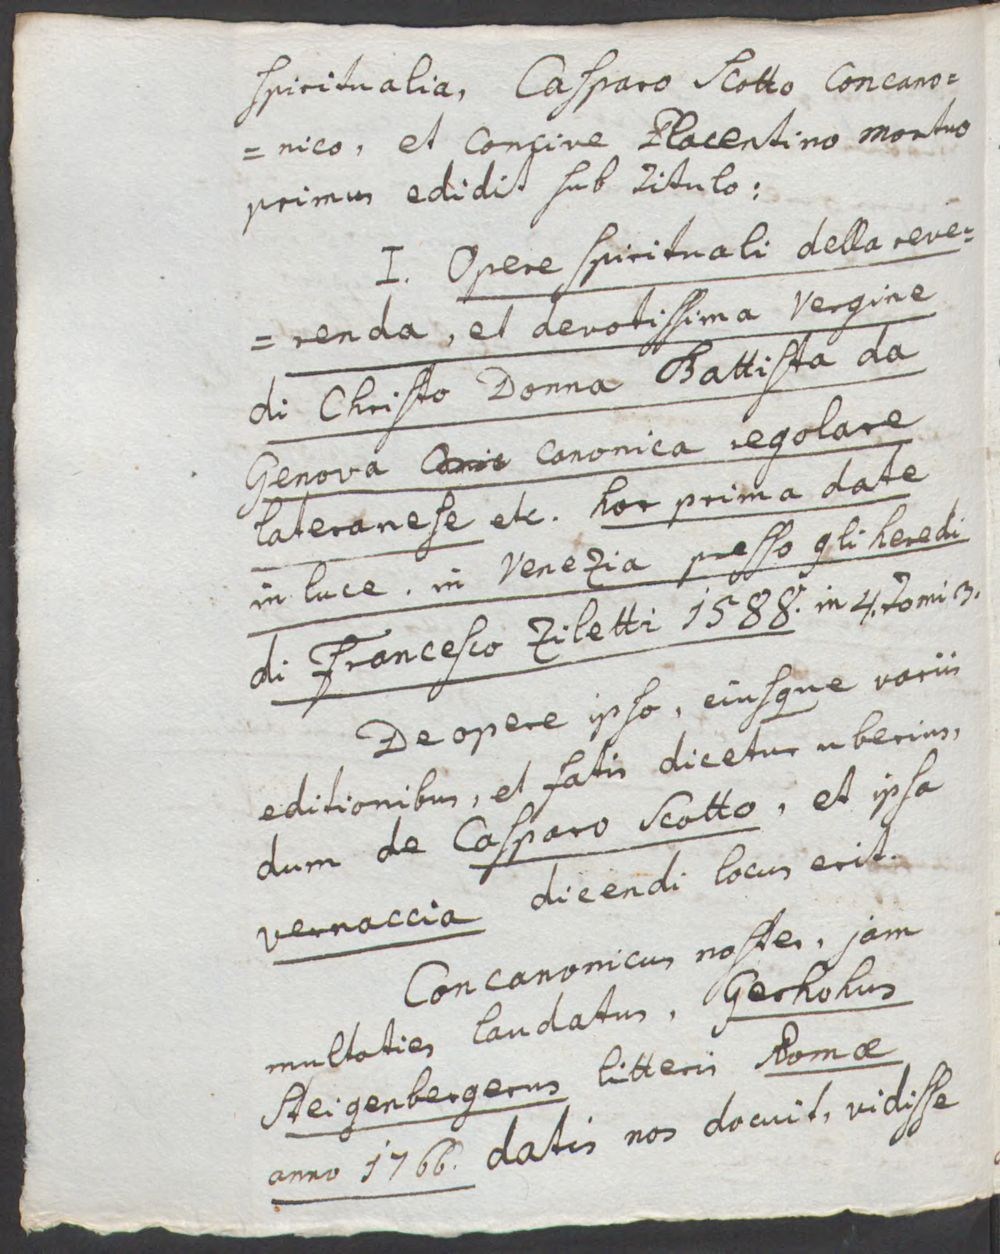 spiritualia, Casparo Scotto Concano=
=nico, et concive Placentino mortuo
primus edidit sub titulo:
I. Opere spirituali della reve=
=renda, et devotissima Vergine
di Christo Donna Battista da
Genova canonica regolare
lateranese etc. hor prima date
in luce. in Venezia presso gli heredi
di Francesco Ziletti 1588. in 4. Tomi 3.
De opere ipso, eiusque variis
editionibus, et fatis dicetur uberius,
dum de Casparo Scotto, et ipsa
vernaccia dicendi locus erit.
Concanonicus noster, jam
multoties laudatus, Gerhohus
Steigenbergerus litteris Romæ
anno 1766. datis nos docuit, vidisse